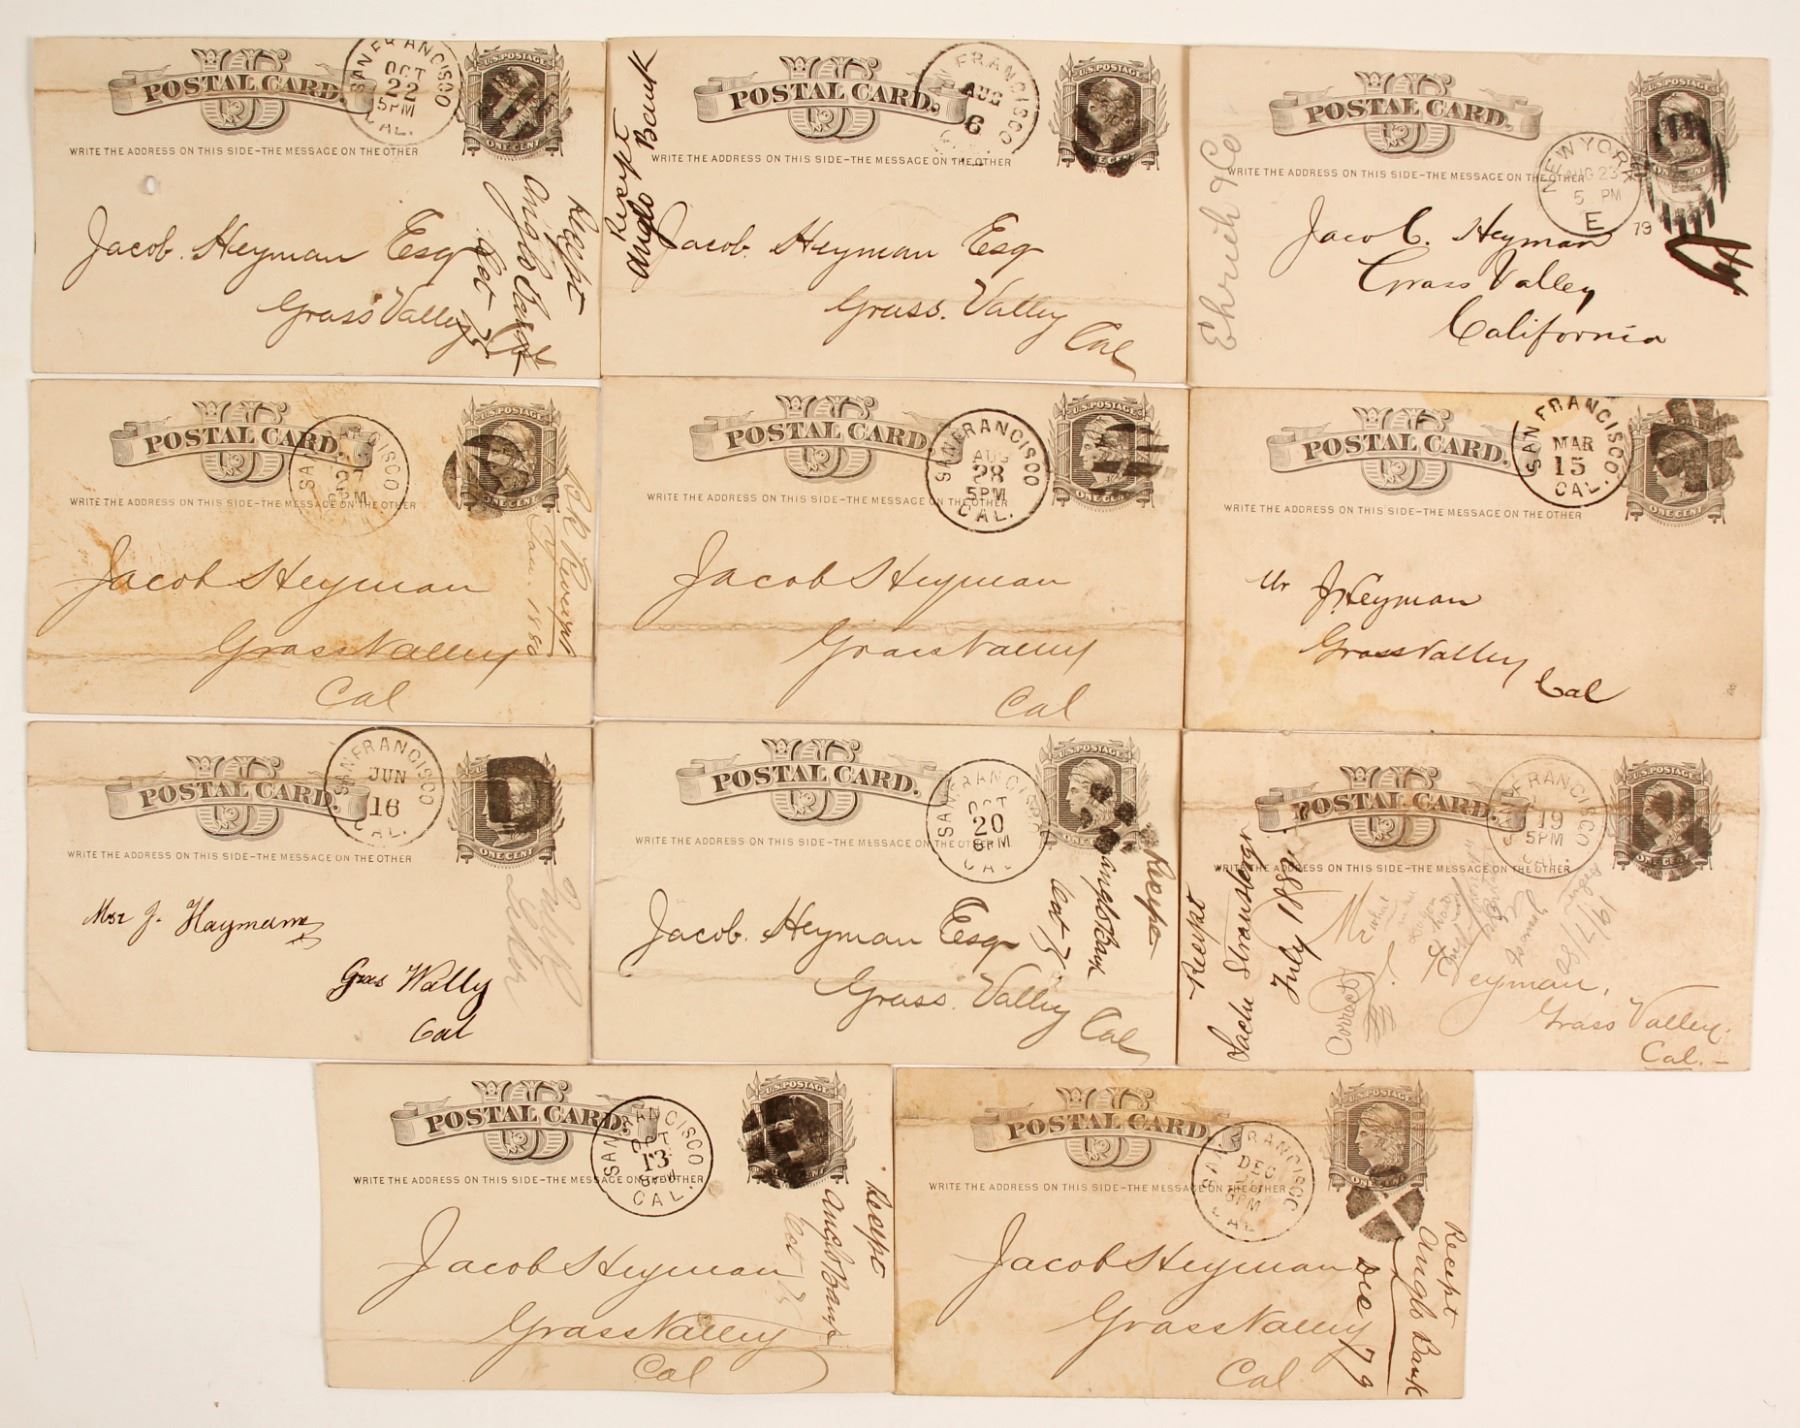 POSTAL CARD.
SAN FRANCISCO
OCT
22
5PM
CAL.
U.S. POSTAGE
ONE CENT
WRITE THE ADDRESS ON THIS SIDE–THE MESSAGE ON THE OTHER
Jacob. Heyman Esq
Grass Valley
Cal
Receipt
Anglo Bank
Oct
Receipt
Anglo Bank
POSTAL CARD.
FRANCISCO
AUG
6
U.S. POSTAGE
ONE CENT
WRITE THE ADDRESS ON THIS SIDE–THE MESSAGE ON THE OTHER
Jacob. Heyman Esq
Grass. Valley
Cal
Ehrich & Co
POSTAL CARD.
NEW YORK
AUG 23
5 PM
E
79
WRITE THE ADDRESS ON THIS SIDE–THE MESSAGE ON THE OTHER
Jacob. Heyman
Grass Valley
California
POSTAL CARD.
SAN FRANCISCO
U.S. POSTAGE
ONE CENT
WRITE THE ADDRESS ON THIS SIDE–THE MESSAGE ON THE OTHER
Jacob Heyman
Grass Valley
Cal
Receipt
Jan. 1880
POSTAL CARD.
SAN FRANCISCO
AUG
28
5PM
CAL.
U.S. POSTAGE
ONE CENT
WRITE THE ADDRESS ON THIS SIDE–THE MESSAGE ON THE OTHER
Jacob Heyman
Grass Valley
Cal
POSTAL CARD.
SAN FRANCISCO.
MAR
15
CAL.
ONE CENT
WRITE THE ADDRESS ON THIS SIDE–THE MESSAGE ON THE OTHER
Mr J. Heyman
Grass Valley
Cal
POSTAL CARD.
SAN FRANCISCO
JUN
16
CAL.
ONE CENT
WRITE THE ADDRESS ON THIS SIDE–THE MESSAGE ON THE OTHER
Msr J. Haymann
Gras Wally
Cal
POSTAL CARD.
SAN FRANCISCO
OCT
20
6PM
CAL
U.S. POSTAGE
WRITE THE ADDRESS ON THIS SIDE–THE MESSAGE ON THE OTHER
Jacob. Heyman Esq
Grass. Valley
Cal
Receipt
Anglo Bank
Oct
POSTAL CARD.
FRANCISCO
19
5PM
CAL.
U.S. POSTAGE
ONE CENT
WRITE THE ADDRESS ON THIS SIDE–THE MESSAGE ON THE OTHER
Receipt
Sachs Strassburger
July 1880
Correct
J. Heyman,
Grass Valley.
Cal.–
POSTAL CARD.
SAN FRANCISCO
OCT
13
CAL.
U.S. POSTAGE
WRITE THE ADDRESS ON THIS SIDE–THE MESSAGE ON THE OTHER
Jacob Heyman
Grass Valley
Cal
Receipt
Anglo Bank
Oct
POSTAL CARD.
SAN FRANCISCO
DEC
6PM
CAL
U.S. POSTAGE
ONE CENT
WRITE THE ADDRESS ON THIS SIDE–THE MESSAGE ON THE OTHER
Jacob Heyman
Grass Valley
Cal
Receipt
Anglo Bank
Dec 79